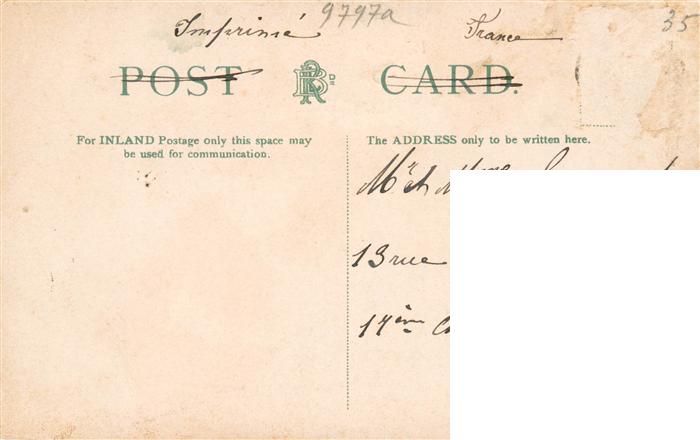 Imprimé 9797a France 35
POST RB Dᴱ CARD.
For INLAND Postage only this space may
be used for communication.
The ADDRESS only to be written here.
Mr et Mme
13 rue
17ème